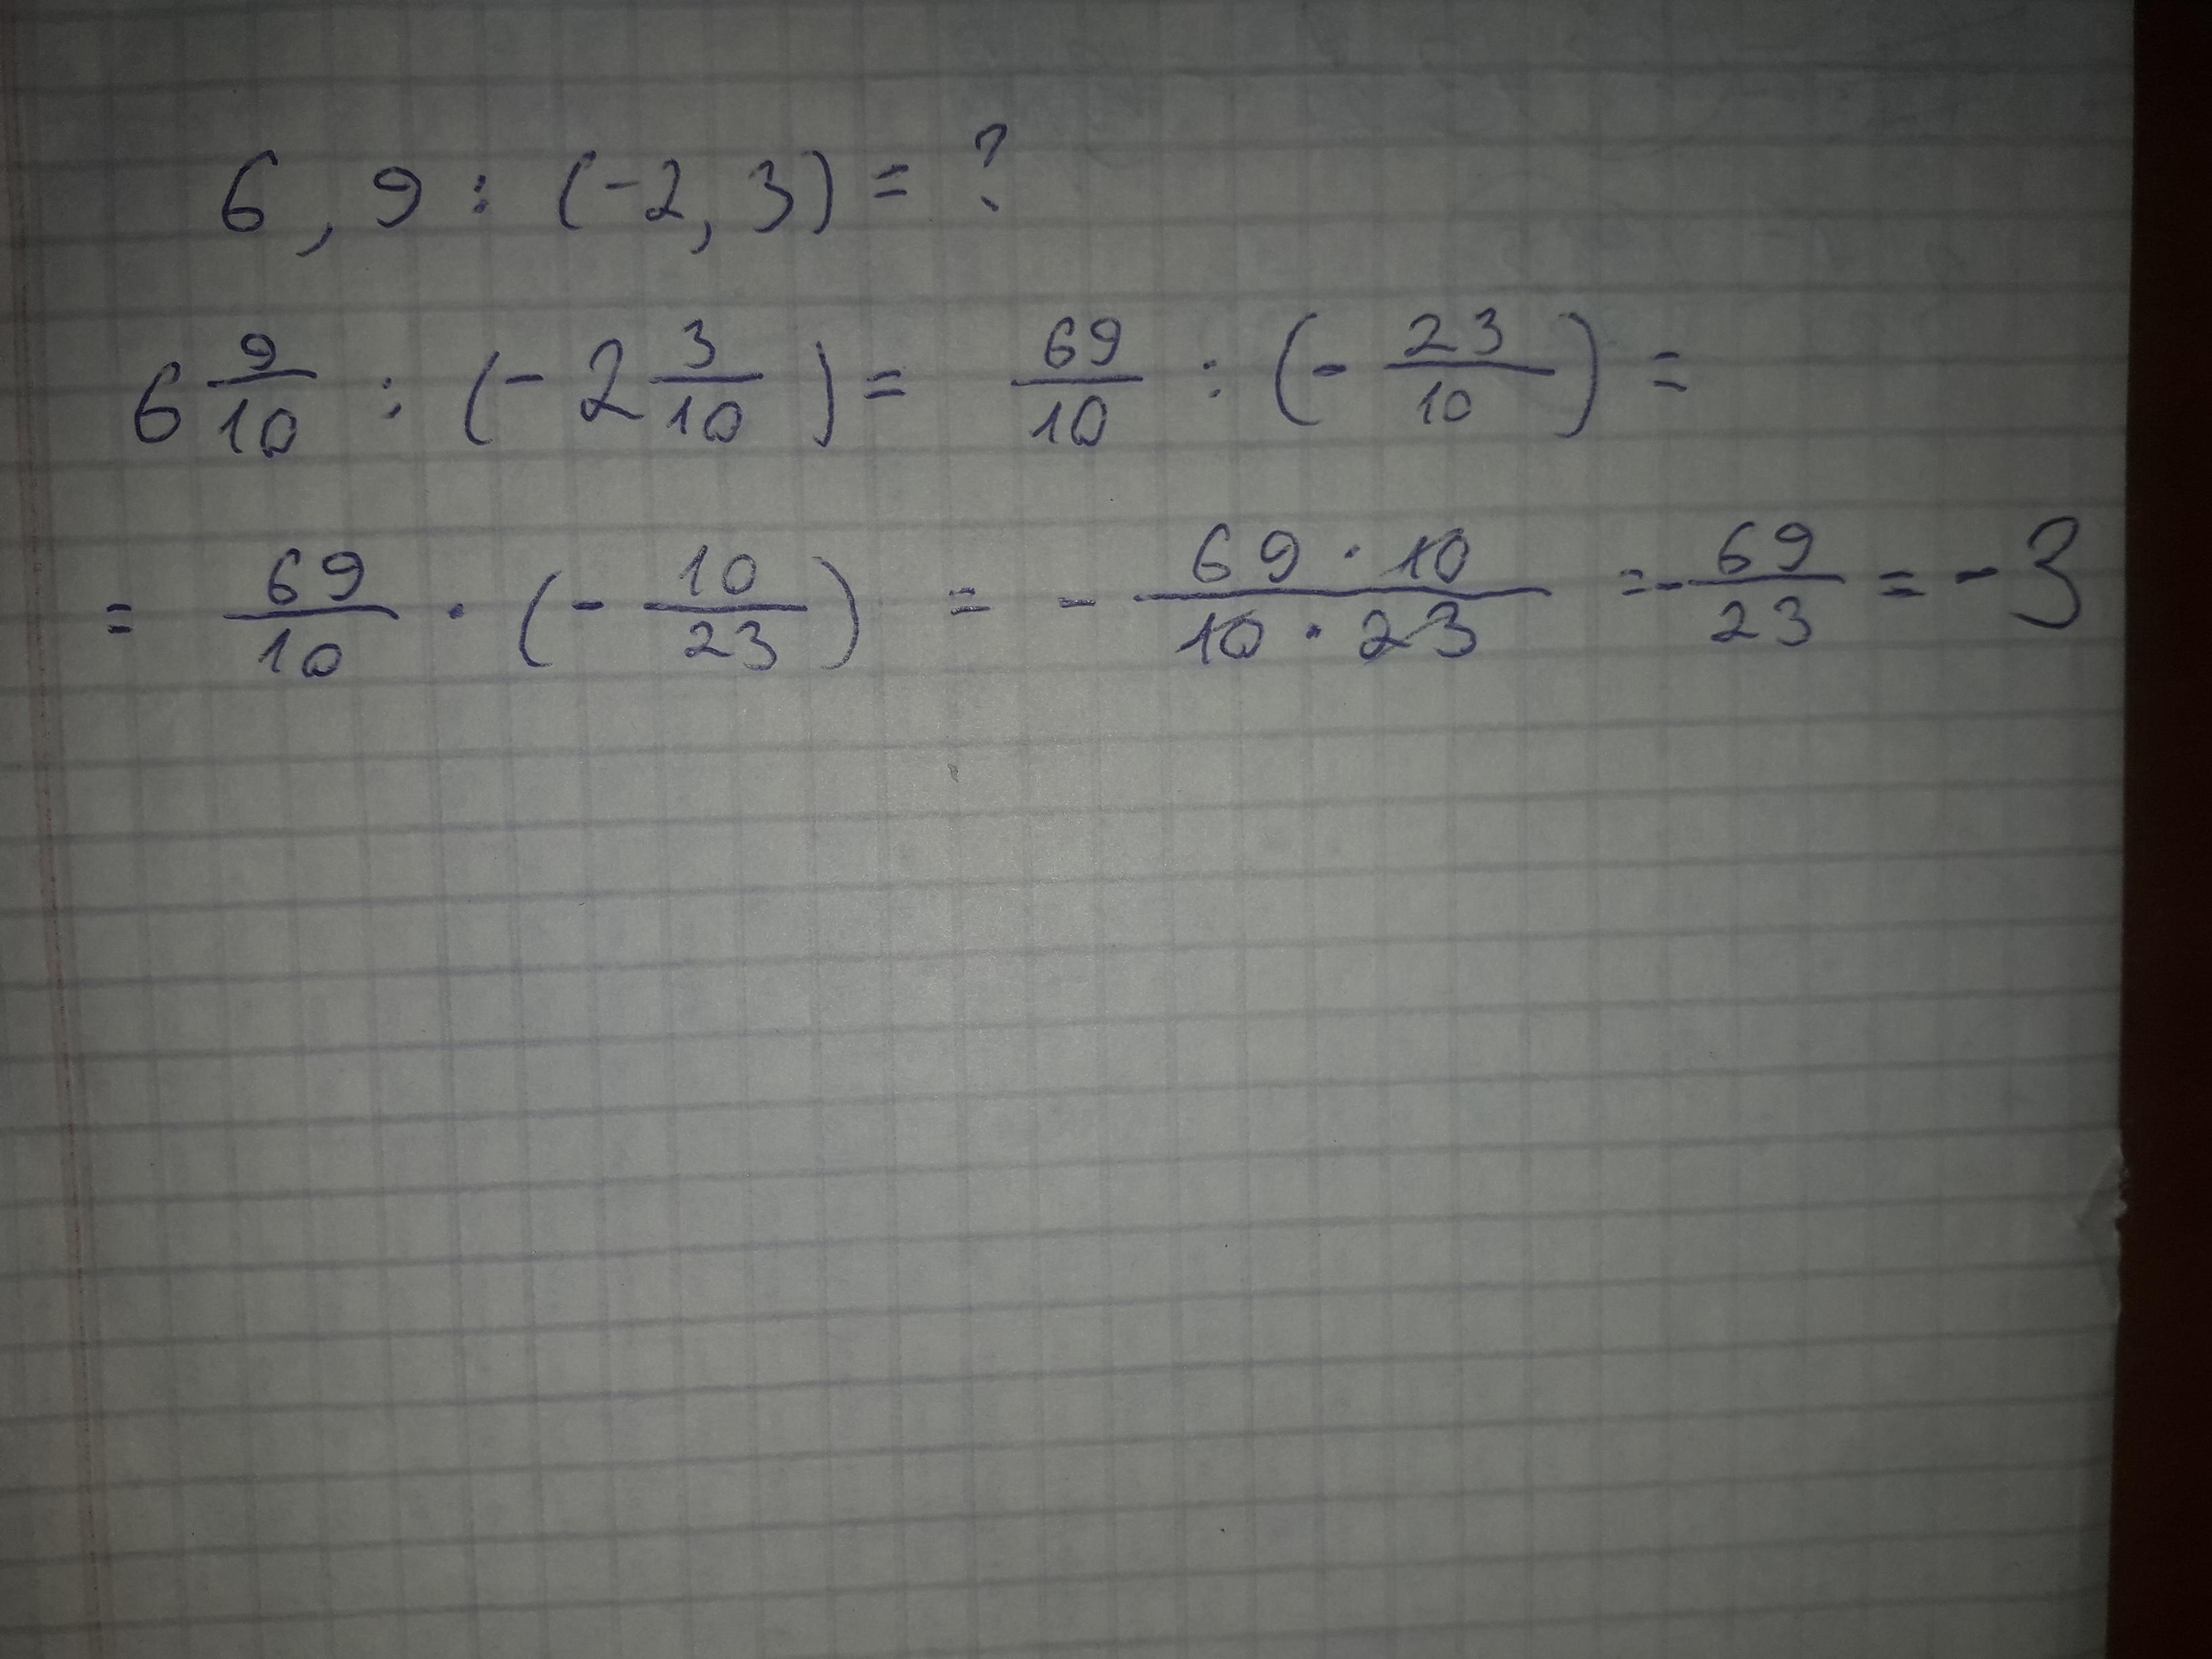 6,9 : (-2,3) = ?
6 9/10 : (-2 3/10) = 69/10 : (-23/10) =
= 69/10 · (-10/23) = - 69·10/10·23 = - 69/23 = -3